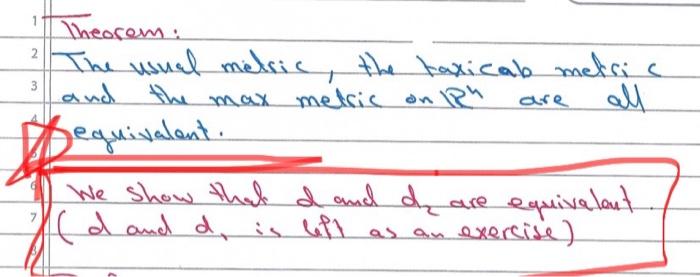 1 Theorem:
2 The usual metric, the taxicab metric
3 and the max metric on ℝⁿ are all
4 equivalent.
5
6 We show that d and d₂ are equivalent.
7 (d and d₁ is left as an exercise)
8